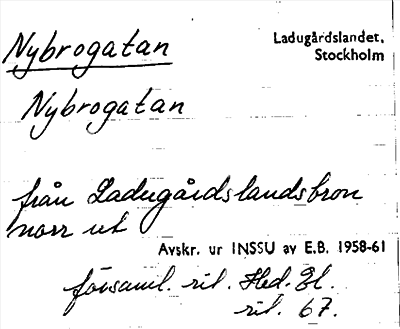 Nybrogatan
Ladugårdslandet,
Stockholm
Nybrogatan
från Ladugårdslandsbron
norr ut
Avskr. ur INSSU av E.B. 1958-61
församl. rit. Hed. El.
rit. 67.